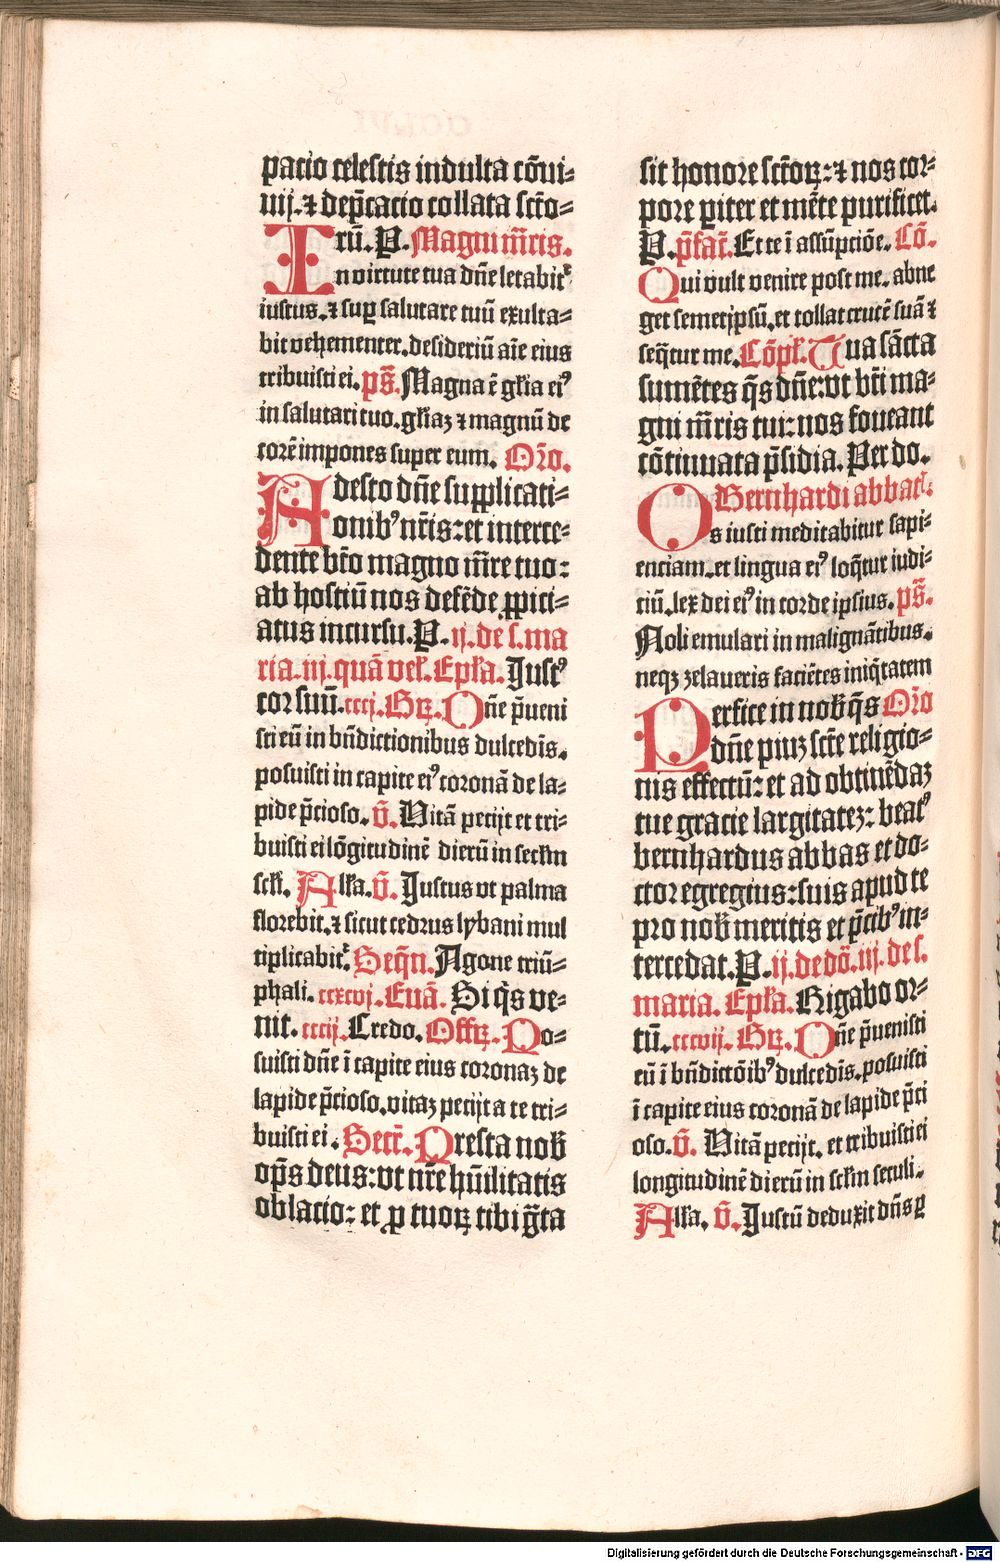 pacio celestis indulta cōui-
uij. ⁊ dep̄cacio collata sct̄o-
rū. P. Magni m̄ris.
In virtute tua dn̄e letabit᷑
iustus. ⁊ suꝑ salutare tuū exulta-
bit vehementer. desideriū aīe eius
tribuisti ei. ps̄. Magna ē gl̄ia ei⁹
in salutari tuo. gl̄iaꝫ ⁊ magnū de
corē impones super eum. Or̄o.
Adesto dn̄e supplicati-
onib⁹ nr̄is: et interce-
dente bt̄o magno m̄re tuo:
ab hostiū nos defēde ꝓpici-
atus incursu. P. ij. de s. ma
ria. iij. quā vel̄. Epl̄a. Iust⁹
cor suū. cccj. Gꝝ. Dn̄e p̄ueni
sti eū in bn̄dictionibus dulcedīs.
posuisti in capite ei⁹ coronā de la-
pide p̄cioso. v̄. Vitā petijt et tri-
buisti ei lōgitudinē dierū in secl̄m
scl̄i. All̄a. v̄. Iustus vt palma
florebit. ⁊ sicut cedrus lybani mul
tiplicabit᷑. Seqn̄. Agone triū-
phali. ccxcvj. Euā. Si q̄s ve-
nit. cccij. Credo. Offꝝ. Po-
suisti dn̄e ī capite eius coronaꝫ de
lapide p̄cioso. vitaꝫ petijt a te tri-
buisti ei. Secr̄. Presta nob̄
op̄s deus: vt nr̄e hūilitatis
oblacio: et ꝓ tuoꝝ tibi ḡta
sit honore sct̄oꝝ: ⁊ nos cor-
pore ꝑiter et mēte purificet.
P. p̄fac̄. Et te ī assūpciōe. Cō.
Qui vult venire post me. abne
get semetip̄sū. et tollat crucē suā ⁊
seq̄tur me. Cōpl̄. Tua sācta
sumētes q̄s dn̄e: vt bt̄i ma-
gni m̄ris tui: nos foueant
cōtinuata p̄sidia. Per do.
Bernhardi abbat̄.
Os iusti meditabitur sapi-
enciam. et lingua ei⁹ loq̄tur iudi-
tiū. lex dei ei⁹ in corde ipsius. ps̄.
Noli emulari in malignātibus.
neqꝫ zelaueris faciētes iniq̄tatem
Perfice in nob̄ q̄s Or̄o
dn̄e piuꝫ sct̄e religio-
nis effectū: et ad obtinēdaꝫ
tue gracie largitateꝫ: beat⁹
bernhardus abbas et do-
ctor egregius: suis apud te
pro nob̄ meritis et p̄cib⁹ in-
tercedat. P. ij. de dō. iij. de s.
maria. Epl̄a. Rigabo or-
tū. cccvij. Gꝝ. Dn̄e p̄uenisti
eū ī bn̄dictōib⁹ dulcedīs. posuisti
ī capite eius coronā de lapide p̄ci
oso. v̄. Vitā petijt. et tribuisti ei
longitudinē dierū in scl̄m seculi.
All̄a. v̄. Iustū deduxit dn̄s ꝑ
Digitalisierung gefördert durch die Deutsche Forschungsgemeinschaft - DFG